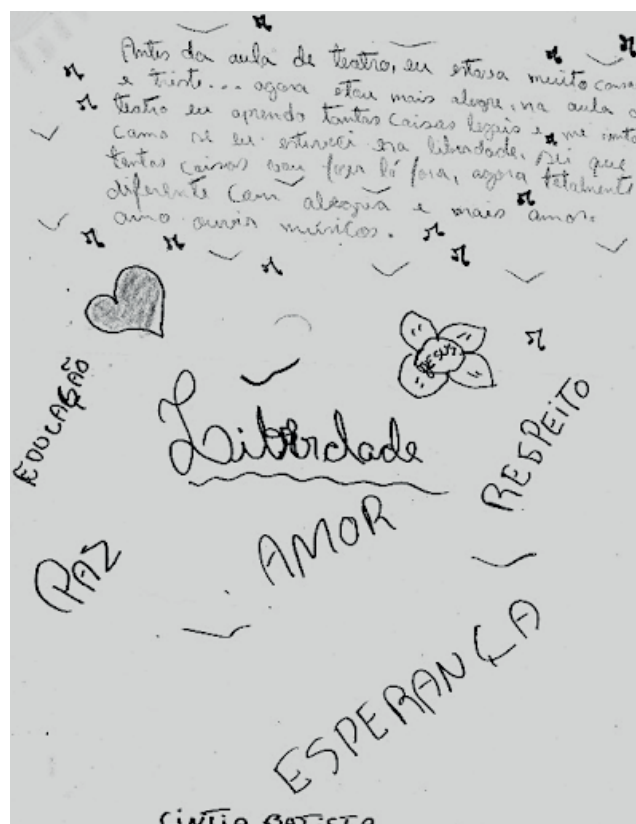 Antes da aula de teatro, eu estava muito cans
e triste... agora estou mais alegre, na aula d
teatro eu aprendo tantas coisas legais e me
como se eu estivesse na liberdade. Sei que
tantas coisas vou fazer lá fora, agora totalmente
diferente com alegria e mais amor.
amo ouvir músicas.
JESUS
EDUCAÇÃO
Liberdade
RESPEITO
PAZ
AMOR
ESPERANÇA
CINTIA BATISTA